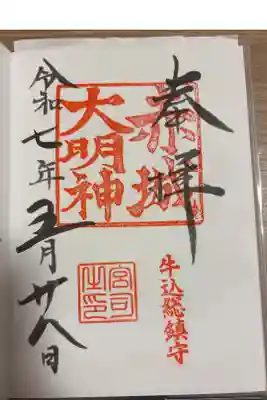 奉拝
牛込総鎮守
赤城
大明神
宮司
之印
令和七年五月廿八日